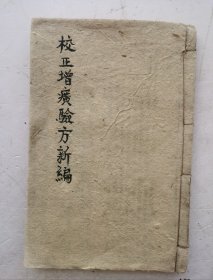 校正增廣驗方新編